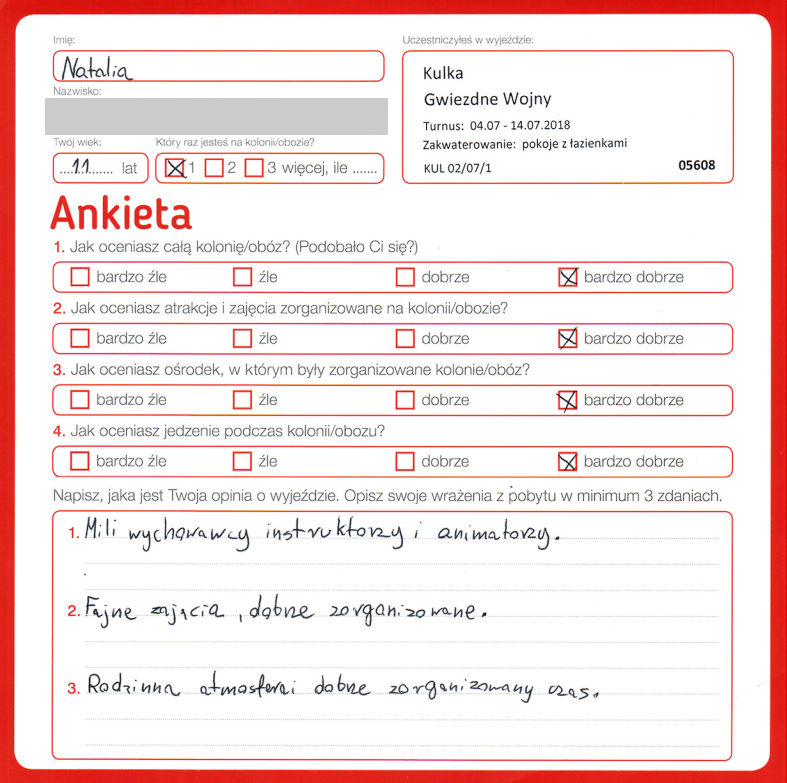 Imię:
Natalia
Nazwisko:
Twój wiek:
Który raz jesteś na kolonii/obozie?
....11...... lat
1 2 3 więcej, ile ......
Uczestniczyłeś w wyjeździe:
Kulka
Gwiezdne Wojny
Turnus: 04.07 - 14.07.2018
Zakwaterowanie: pokoje z łazienkami
KUL 02/07/1 05608
Ankieta
1. Jak oceniasz całą kolonię/obóz? (Podobało Ci się?)
bardzo źle źle dobrze bardzo dobrze
2. Jak oceniasz atrakcje i zajęcia zorganizowane na kolonii/obozie?
bardzo źle źle dobrze bardzo dobrze
3. Jak oceniasz ośrodek, w którym były zorganizowane kolonie/obóz?
bardzo źle źle dobrze bardzo dobrze
4. Jak oceniasz jedzenie podczas kolonii/obozu?
bardzo źle źle dobrze bardzo dobrze
Napisz, jaka jest Twoja opinia o wyjeździe. Opisz swoje wrażenia z pobytu w minimum 3 zdaniach.
1. Mili wychowawcy instruktorzy i animatorzy.
2. Fajne zajęcia, dobrze zorganizowane.
3. Rodzinna atmosfera i dobrze zorganizowany czas.